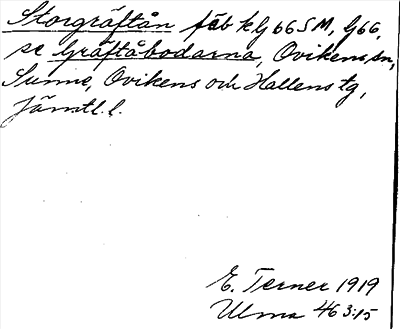 Storgräftån fäb kG66SM, G66,
se Gräftåbodarna, Ovikens sn,
Sunne, Ovikens och Hallens tg,
Jämtl. l.
E. Terner 1919
Ulma 463:15